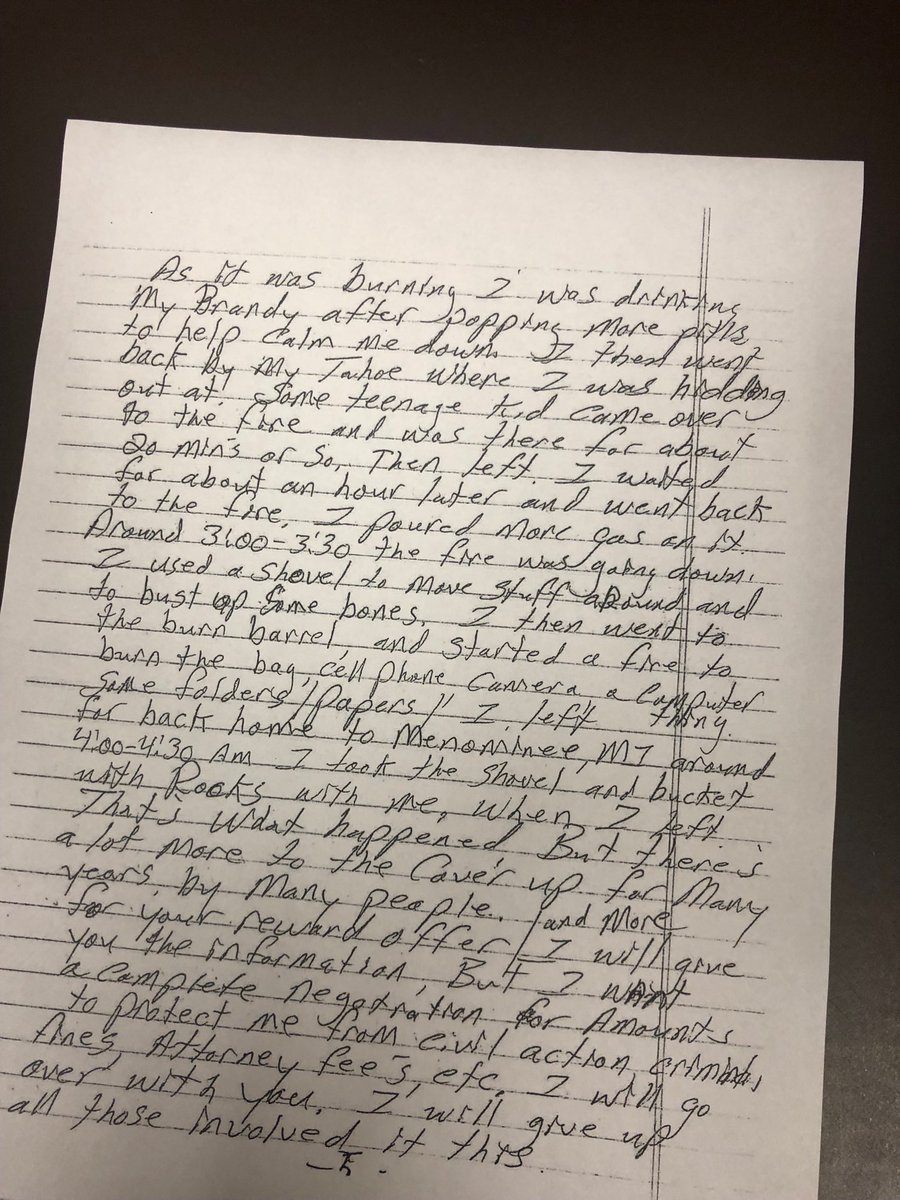 As it was burning I was drinking
My Brandy after popping More pills
to help Calm me down. I then went
back by My Tahoe where I was hidding
out at. Some teenage kid came over
to the fire and was there for about
20 min's or so, Then left. I waited
for about an hour later and went back
to the fire. I poured More gas on it.
Around 3:00-3:30 the fire was going down.
I used a shovel to Move stuff around and
to bust up some bones. I then went to
the burn barrel, and started a fire to
burn the bag, cell phone Camera a Computer
some folders/papers/" I left thing.
for back home to Menominee, MI around
4:00-4:30 AM I took the Shovel and bucket
with Rocks with me, when I left.
That's what happened But there's
a lot More to the Cover up for Many
years, by Many people. and More
for your reward offer/I will give
you the information, But I want
a complete negotiation for Amounts
to protect me from civil action, criminal
fines, Attorney fee's, etc. I will go
over with you. I will give up
all those involved it this.